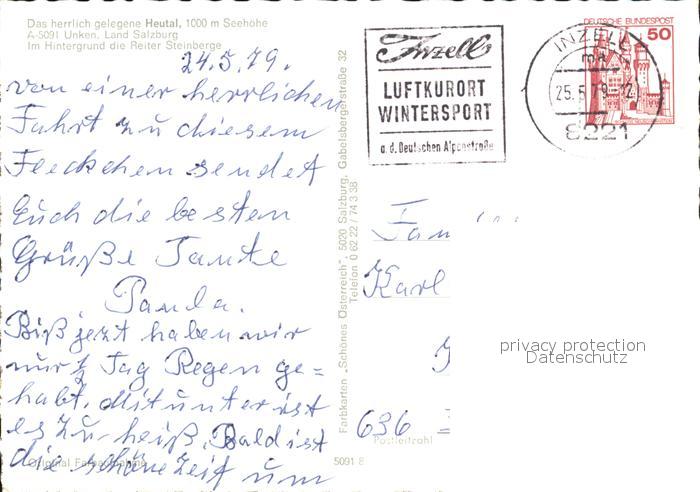 Das herrlich gelegene Heutal, 1000 m Seehöhe
A-5091 Unken, Land Salzburg
Im Hintergrund die Reiter Steinberge
24.5.79.
von einer herrlichen
Fahrt zu diesem
Fleckchen sendet
Euch die besten
Grüße Tante
Paula.
Biß jezt haben wir
nur ½ Tag Regen ge=
habt. Mitunter ist
es zu heiß. Bald ist
die schöne Zeit um
Original Farbaufnahme
5091 8
Farbkarten „Schönes Österreich", 5020 Salzburg, Gabelsbergerstraße 32
Telefon 0 62 22 / 74 3 38
Inzell
LUFTKURORT
WINTERSPORT
a. d. Deutschen Alpenstraße
INZELL
25.5.79-12
8221
DEUTSCHE BUNDESPOST
50
Fam
Karl
636
Postleitzahl
privacy protection
Datenschutz